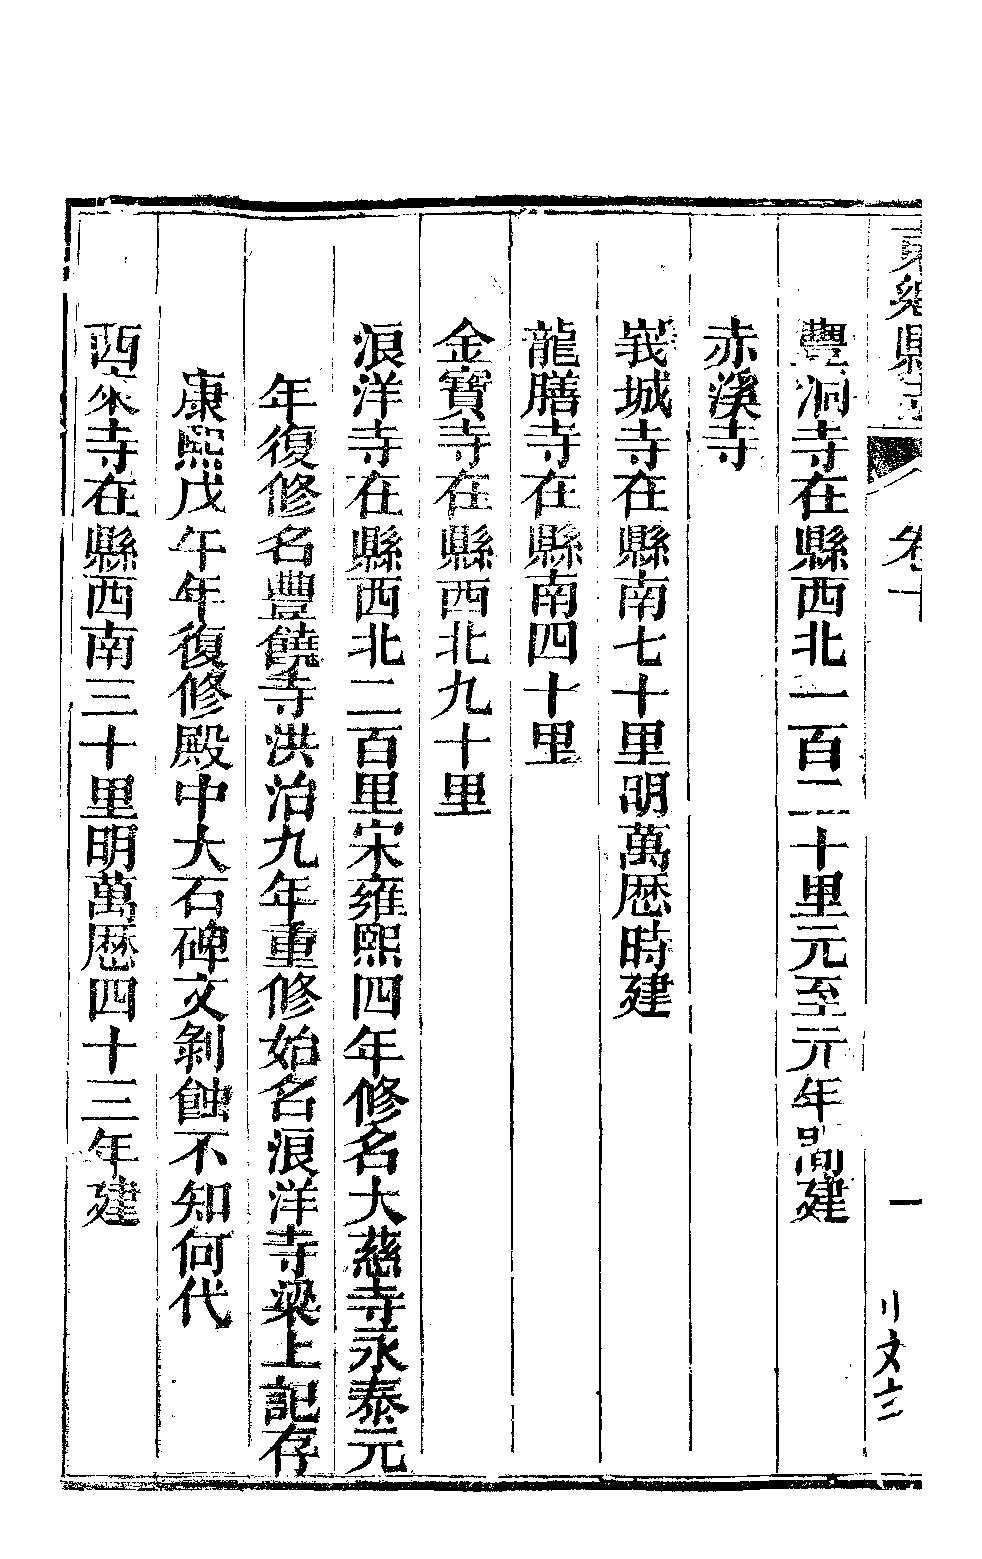 東鄉縣志 卷十 一
豐洞寺在縣西北一百二十里元至元年間建
赤溪寺
峩城寺在縣南七十里明萬厯時建
龍膳寺在縣南四十里
金寶寺在縣西北九十里
浪洋寺在縣西北二百里宋雍熙四年修名大慈寺永泰元
年復修名豐饒寺洪治九年重修始名浪洋寺梁上記存
康熙戊午年復修殿中大石碑文剝蝕不知何代
西來寺在縣西南三十里明萬厯四十三年建